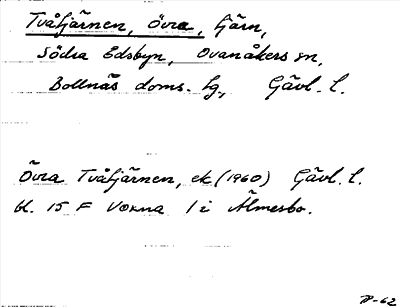 Tvåtjärnen, Övra, tjärn,
Södra Edsbyn, Ovanåkers sn,
Bollnäs doms. lg., Gävl. l.
Övra Tvåtjärnen, ek (1960) Gävl. l.
bl. 15 F Voxna 1 i Älmesbo.
-62